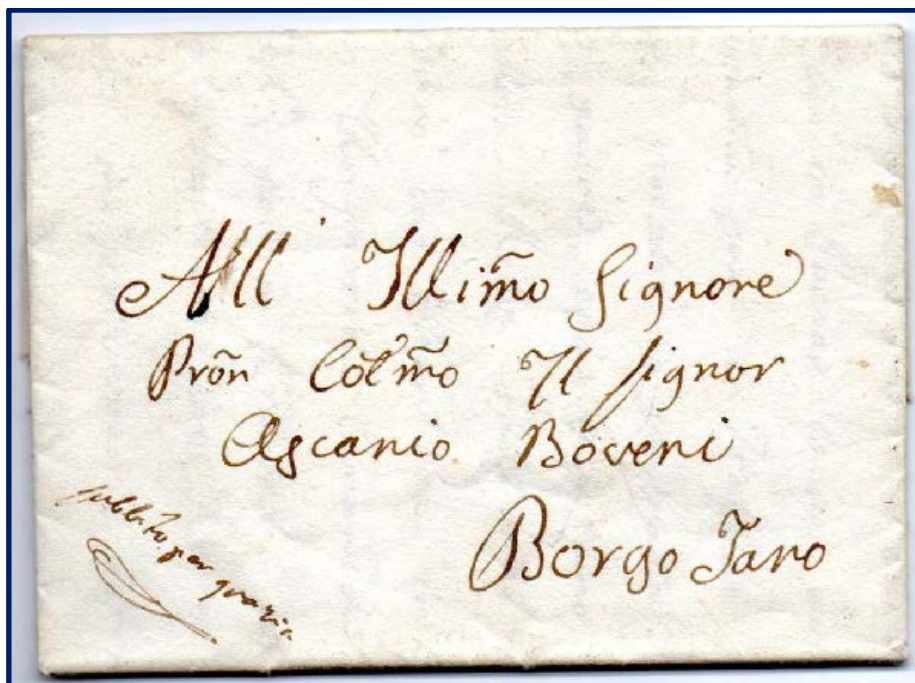 All' Illim̃o Signore
Prõn Cõlm̃o Il Signor
Ascanio Boveri
Borgo Taro
subbito per grazia